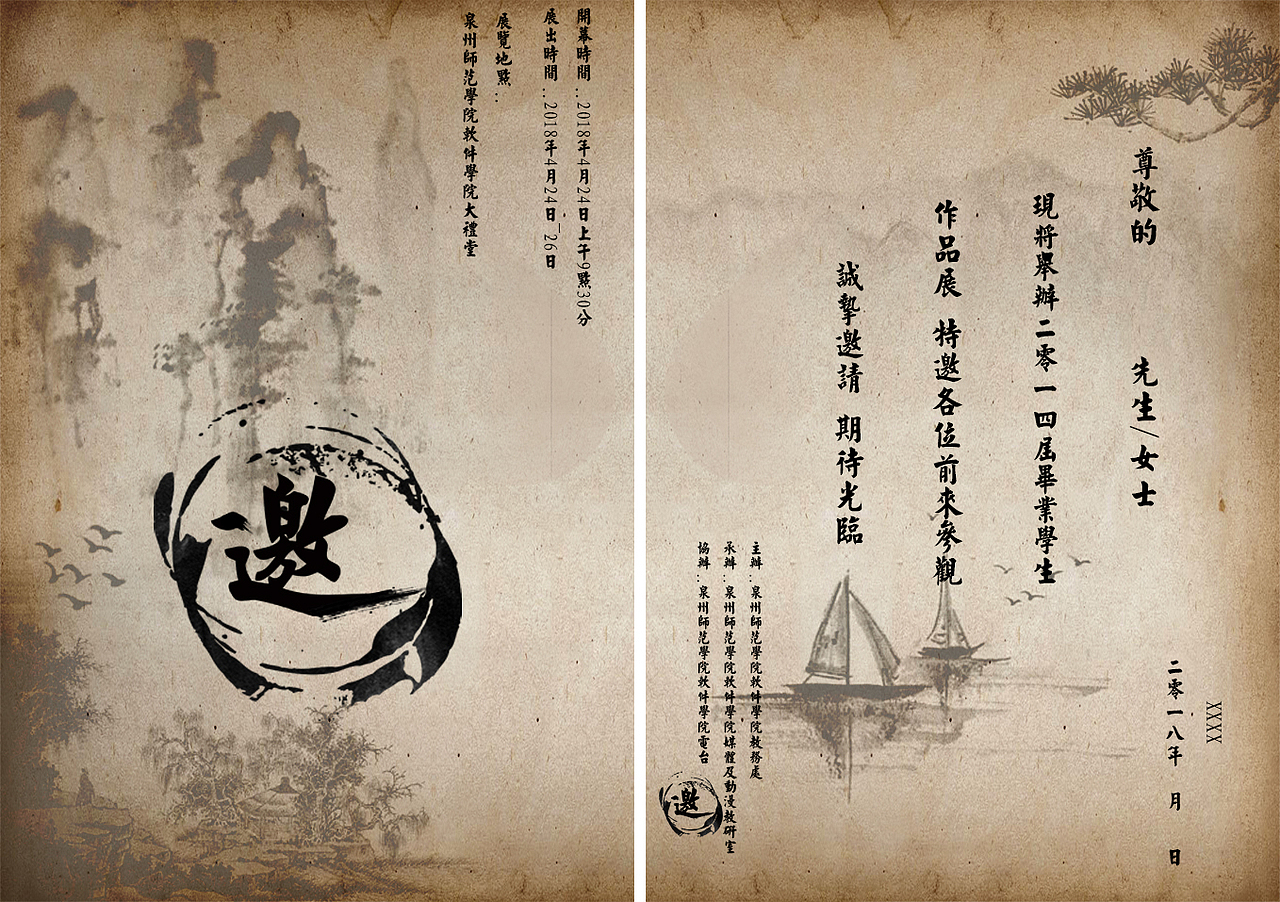 開幕時間：2018年4月24日上午9點30分
展出時間：2018年4月24日—26日
展覽地點：
泉州師范學院軟件學院大禮堂
邀
尊敬的 先生/女士
現將舉辦二零一四屆畢業學生
作品展 特邀各位前來參觀
誠摯邀請 期待光臨
XXXX
二零一八年 月 日
主辦：泉州師范學院軟件學院教務處
承辦：泉州師范學院軟件學院媒體及動漫教研室
協辦：泉州師范學院軟件學院電台
邀